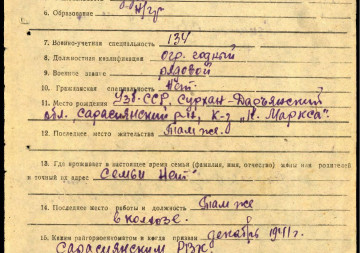 6. Образование н/ср
7. Военно-учетная специальность 134
8. Должностная квалификация огр. годный
9. Военное звание рядовой
10. Гражданская специальность Нет
11. Место рождения Узб-ССР, Сурхан-Дарьинский
обл. Сарасийский р-н, к-з „К. Маркса".
12. Последнее место жительства Там же.
13. Где проживает в настоящее время семья (фамилия, имя, отчество) жены или родителей
и точный их адрес Семьи Нет
14. Последнее место работы и должность Там же
в колхозе.
15. Каким райгорвоенкоматом и когда призван декабрь 1941 г.
Сарасийским РВК.